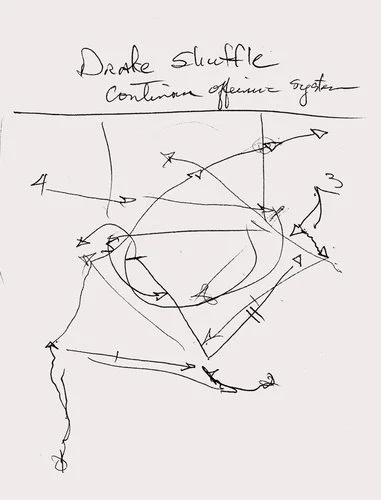 Drake Shuffle
Continuous offensive system
4
3